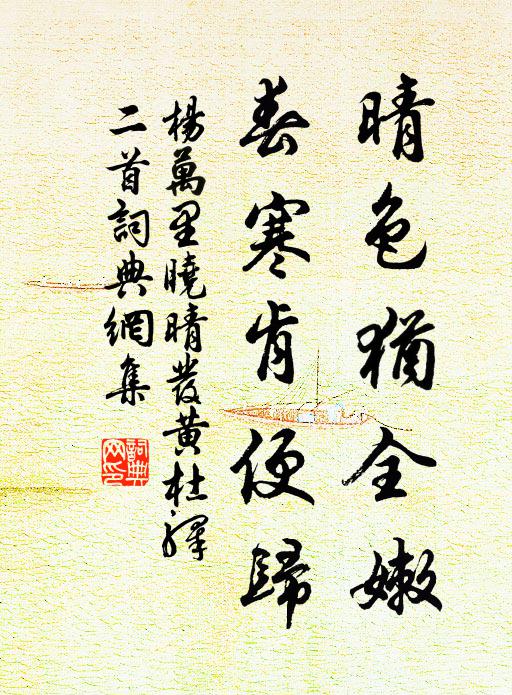 晴色猶全嫩
春寒肯便歸
楊萬里曉晴發黃杜驛
二首詞典網集
詞典網印